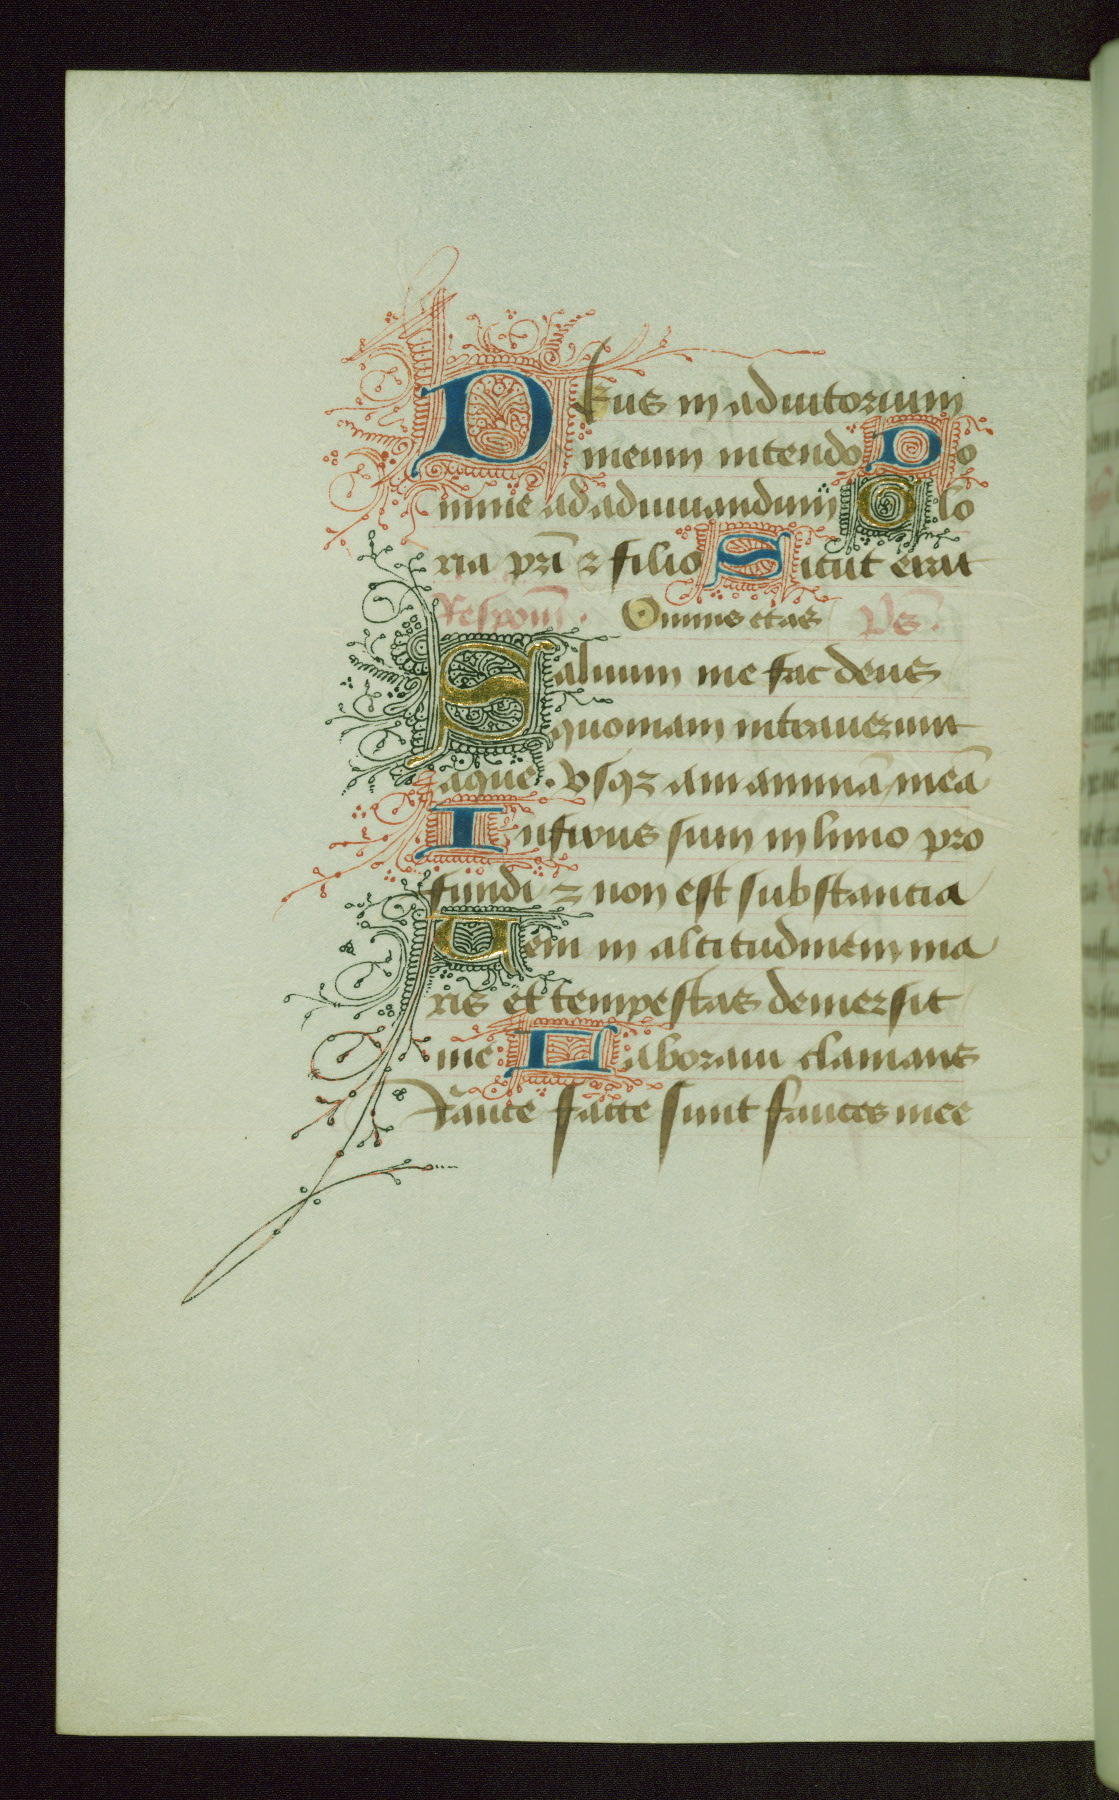 Deus in adiutorium
meum intendo Do
mine ad adiuuandum Glo
ria pr̄i ⁊ filio Sicut erat
Respon̄. Omnis etas Ps̄.
Saluum me fac deus
quoniam intrauerunt
aque. vsqꝫ am animā meā
Infixus sum in limo pro
fundi ⁊ non est substancia
Veni in altitudinem ma
ris et tempestas demersit
me Laboraui clamans
rauce facte sunt fauces mee